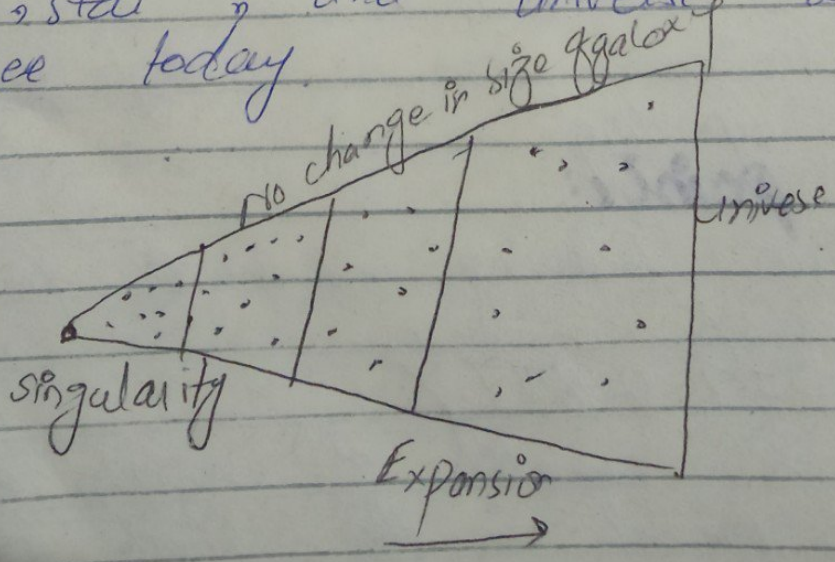 ee today.
No change in size of galox
univese
singularity
Expansion